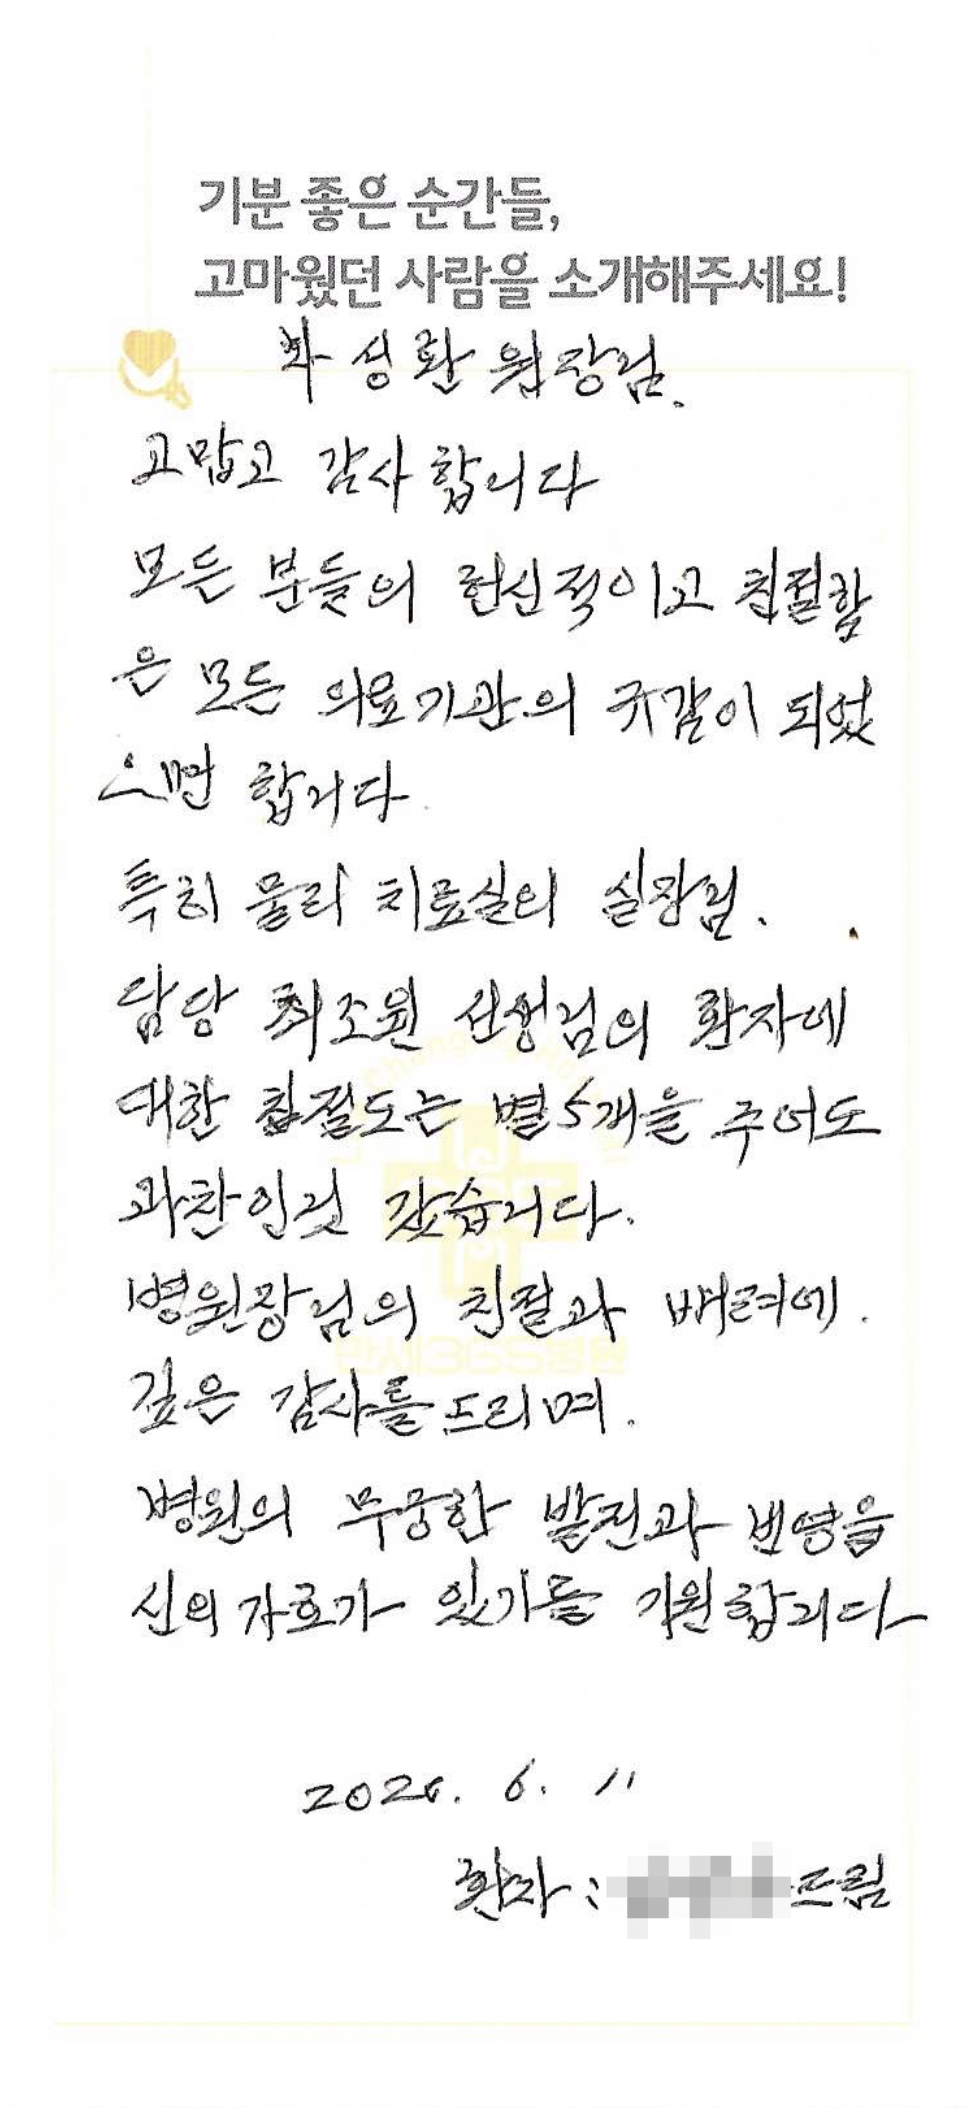 기분 좋은 순간들,
고마웠던 사람을 소개해주세요!
차 성환 원장님.
고맙고 감사합니다
모든 분들의 헌신적이고 친절함
은 모든 의료기관의 귀감이 되었
으면 합니다
특히 물리 치료실의 실장님.
담당 최조원 선생님의 환자에
대한 친절도는 별5개을 주어도
과찬인것 갔습니다.
병원장님의 친절과 배려에.
깊은 감사를 드리며.
병원의 무궁한 발전과 번영을
신의 가호가 있기를 기원합니다
6. 11
환자 : 드림
만세365병원